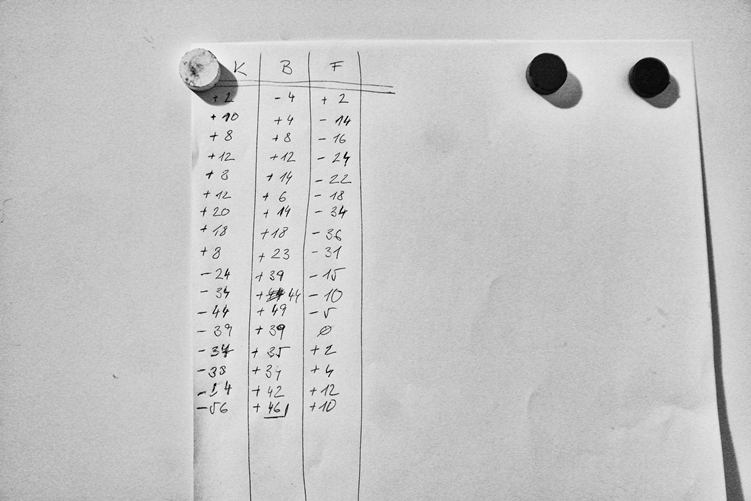 K B F
+2 -4 +2
+10 +4 -14
+8 +8 -16
+12 +12 -24
+8 +14 -22
+12 +6 -18
+20 +14 -34
+18 +18 -36
+8 +23 -31
-24 +39 -15
-34 +44 -10
-44 +49 -5
-39 +39 0
-37 +35 +2
-38 +34 +4
-54 +42 +12
-56 +46 +10